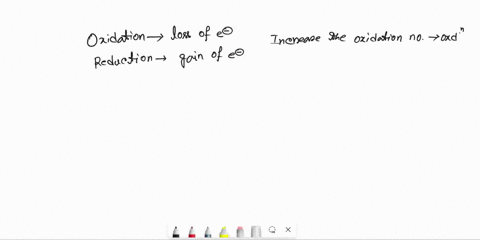 Oxidation → loss of e⊖
Reduction → gain of e⊖
Increase the oxidation no. → oxdⁿ